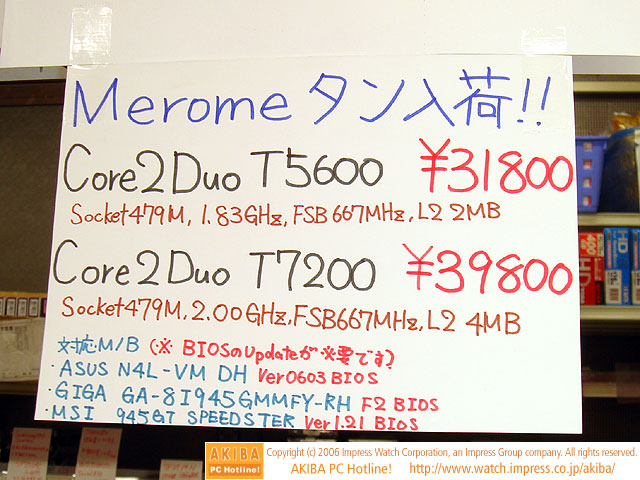 Merome タン入荷!!
Core2Duo T5600 ¥31800
Socket479M, 1.83GHz, FSB667MHz, L2 2MB
Core2Duo T7200 ¥39800
Socket479M, 2.00GHz, FSB667MHz, L2 4MB
対応M/B (※ BIOSのUpdateが必要です)
・ASUS N4L-VM DH Ver0603 BIOS
・GIGA GA-8I945GMMFY-RH F2 BIOS
・MSI 945GT SPEEDSTER Ver1.21 BIOS
AKIBA PC Hotline!
Copyright (c) 2006 Impress Watch Corporation, an Impress Group company. All rights reserved.
AKIBA PC Hotline! http://www.watch.impress.co.jp/akiba/